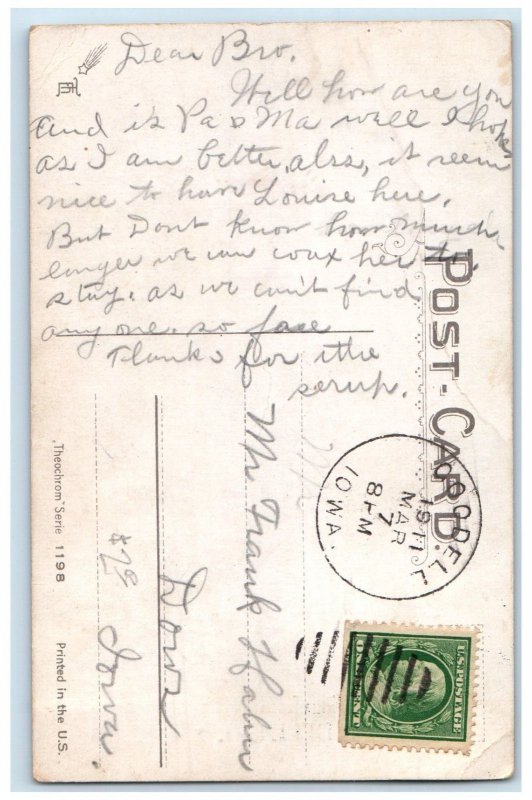 Dear Bro.
Well how are you
and is Pa & Ma well I hope
as I am better, also, it seem
nice to have Louise here.
But Dont Know how much
longer we can coax her to
stay. as we can't find
any one. so
Thanks for the
serup.
POST-CARD.
GOODELL
1911
MAR
7
8PM
IOWA.
Mr Frank
Dows
Iowa.
"Theochrom" Serie 1198
Printed in the U.S.
U.S. POSTAGE
ONE CENT